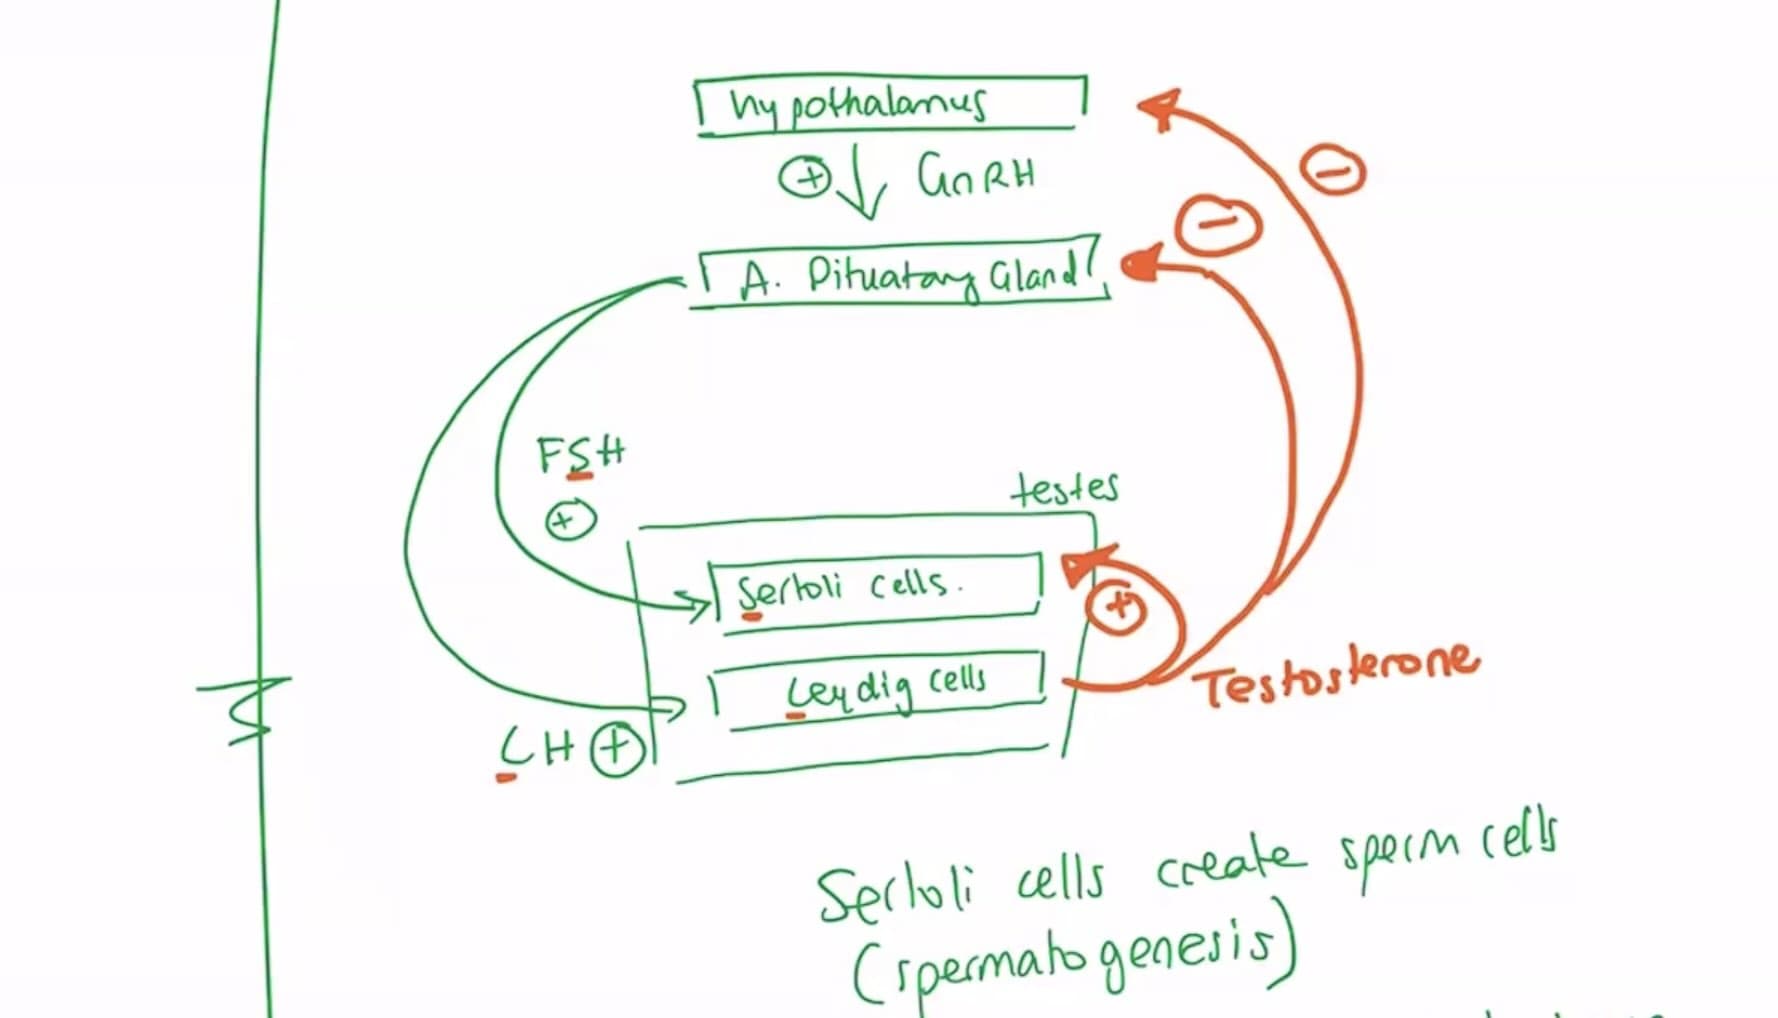 hypothalamus
⊕ ↓ GnRH
⊖
⊖
A. Pituatary Gland
FSH
⊕
testes
Sertoli cells.
⊕
Leydig cells
Testosterone
LH ⊕
Sertoli cells create sperm cells
(spermatogenesis)